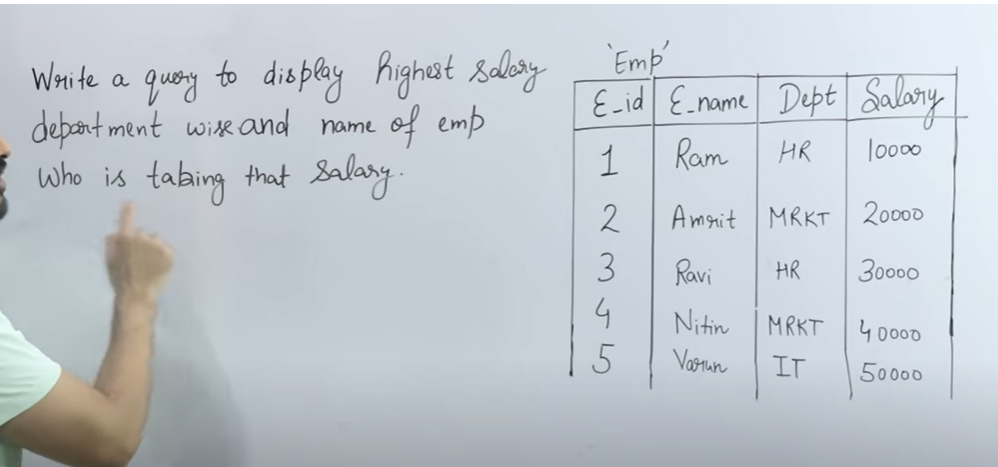 Write a query to display highest salary
department wise and name of emp
who is taking that salary.
'Emp'
E_id E_name Dept Salary
1 Ram HR 10000
2 Amrit MRKT 20000
3 Ravi HR 30000
4 Nitin MRKT 40000
5 Varun IT 50000